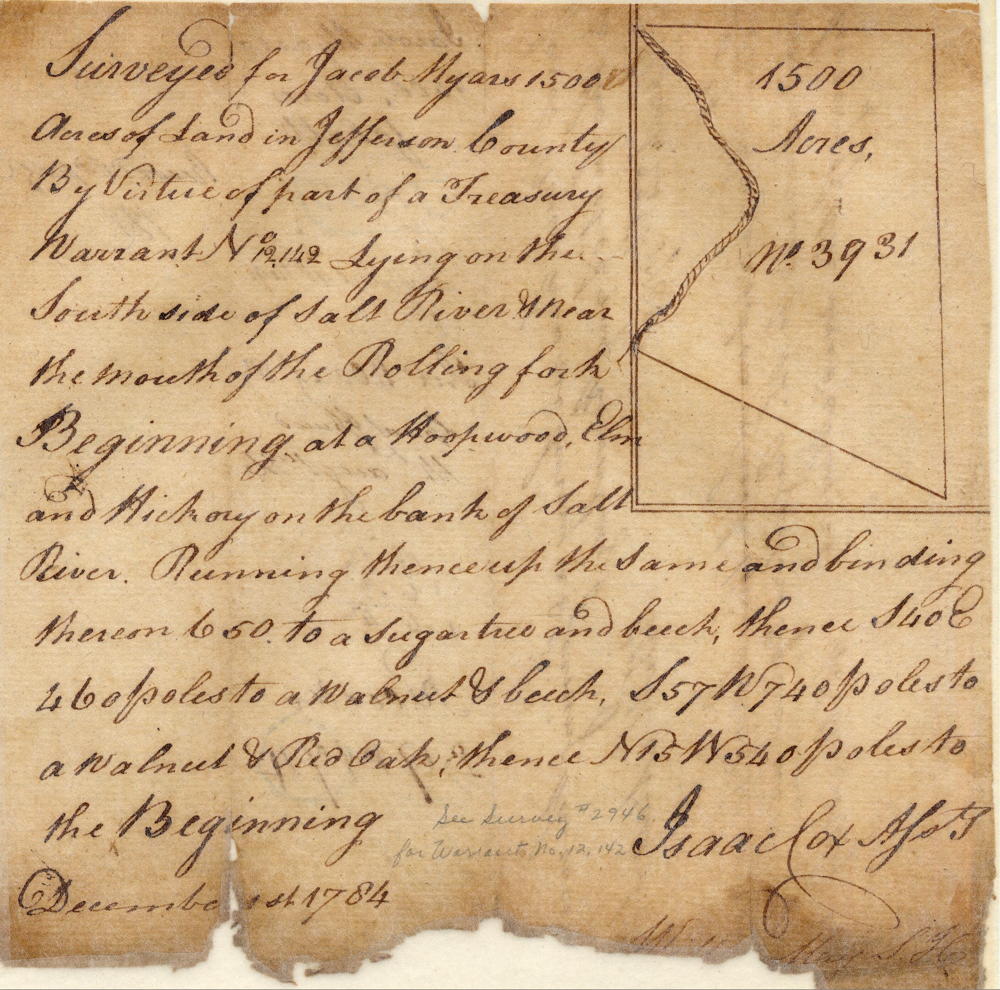 Surveyed for Jacob Myars 1500
Acres of Land in Jefferson County
By Virtue of part of a Treasury
Warrant No 12,142 Lying on the
South side of Salt River & Near
the mouth of the Rolling fork
Beginning at a Hoopwood, Elm
and Hickory on the bank of Salt
River. Running thence up the Same and binding
thereon 650. to a Sugartree and beech, thence S40E
460 poles to a Walnut & beech, S57W740 poles to
a Walnut & Red Oak, thence N15W540 poles to
the Beginning
See Survey #2946.
for Warrant No. 12,142
Isaac Cox Asst
December 1st 1784
May S.
1500
Acres,
No. 3931